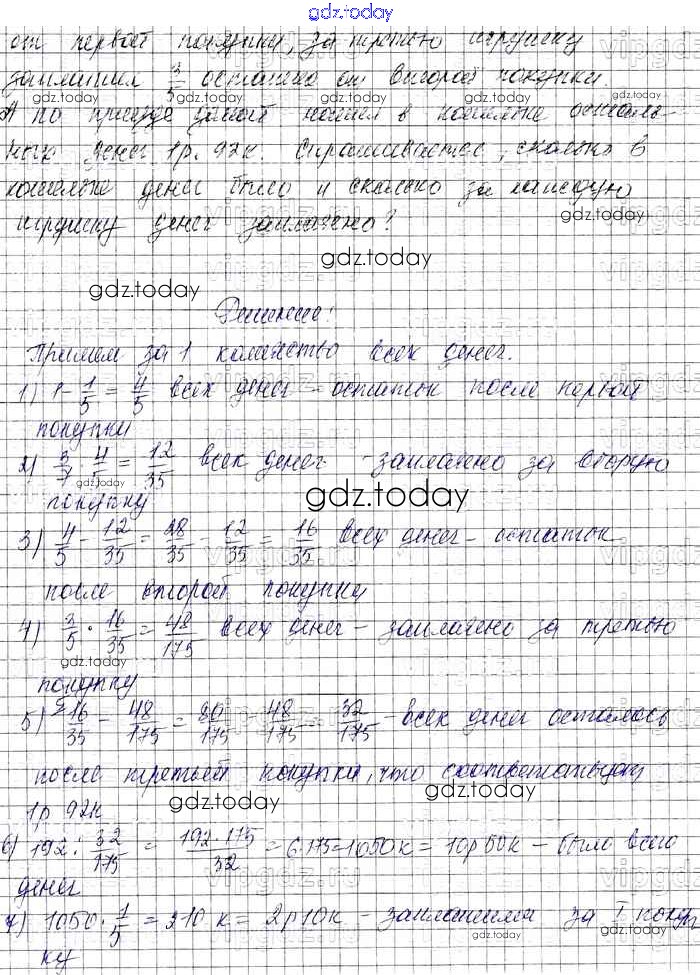 gdz.today
от первой покупки, за третью игрушку
заплатил 3/5 остатка от второй покупки.
gdz.today gdz.today gdz.today gdz.today
А по приезде домой нашел в кошельке осталь-
ных денег 1р. 92к. Спрашивается, сколько в
кошельке денег было и сколько за каждую
gdz.today
игрушку денег заплачено?
gdz.today
gdz.today
Решение:
Примем за 1 количество всех денег.
1) 1 - 1/5 = 4/5 всех денег - остаток после первой
покупки
2) 3/7 · 4/5 = 12/35 всех денег - заплачено за вторую
gdz.today
покупку
gdz.today
3) 4/5 - 12/35 = 28/35 - 12/35 = 16/35 всех денег - остаток
после второй покупки
4) 3/5 · 16/35 = 48/175 всех денег - заплачено за третью
gdz.today
покупку
5) 16/35 - 48/175 = 80/175 - 48/175 = 32/175 - всех денег осталось
после третьей покупки, что соответствует
gdz.today gdz.today
1р 92к
6) 192 : 32/175 = 192·175/32 = 6·175 = 1050к = 10р 50к - было всего
денег
7) 1050 · 1/5 = 210 к = 2р 10к - заплатили за I покуп
gdz.today gdz.today
ку